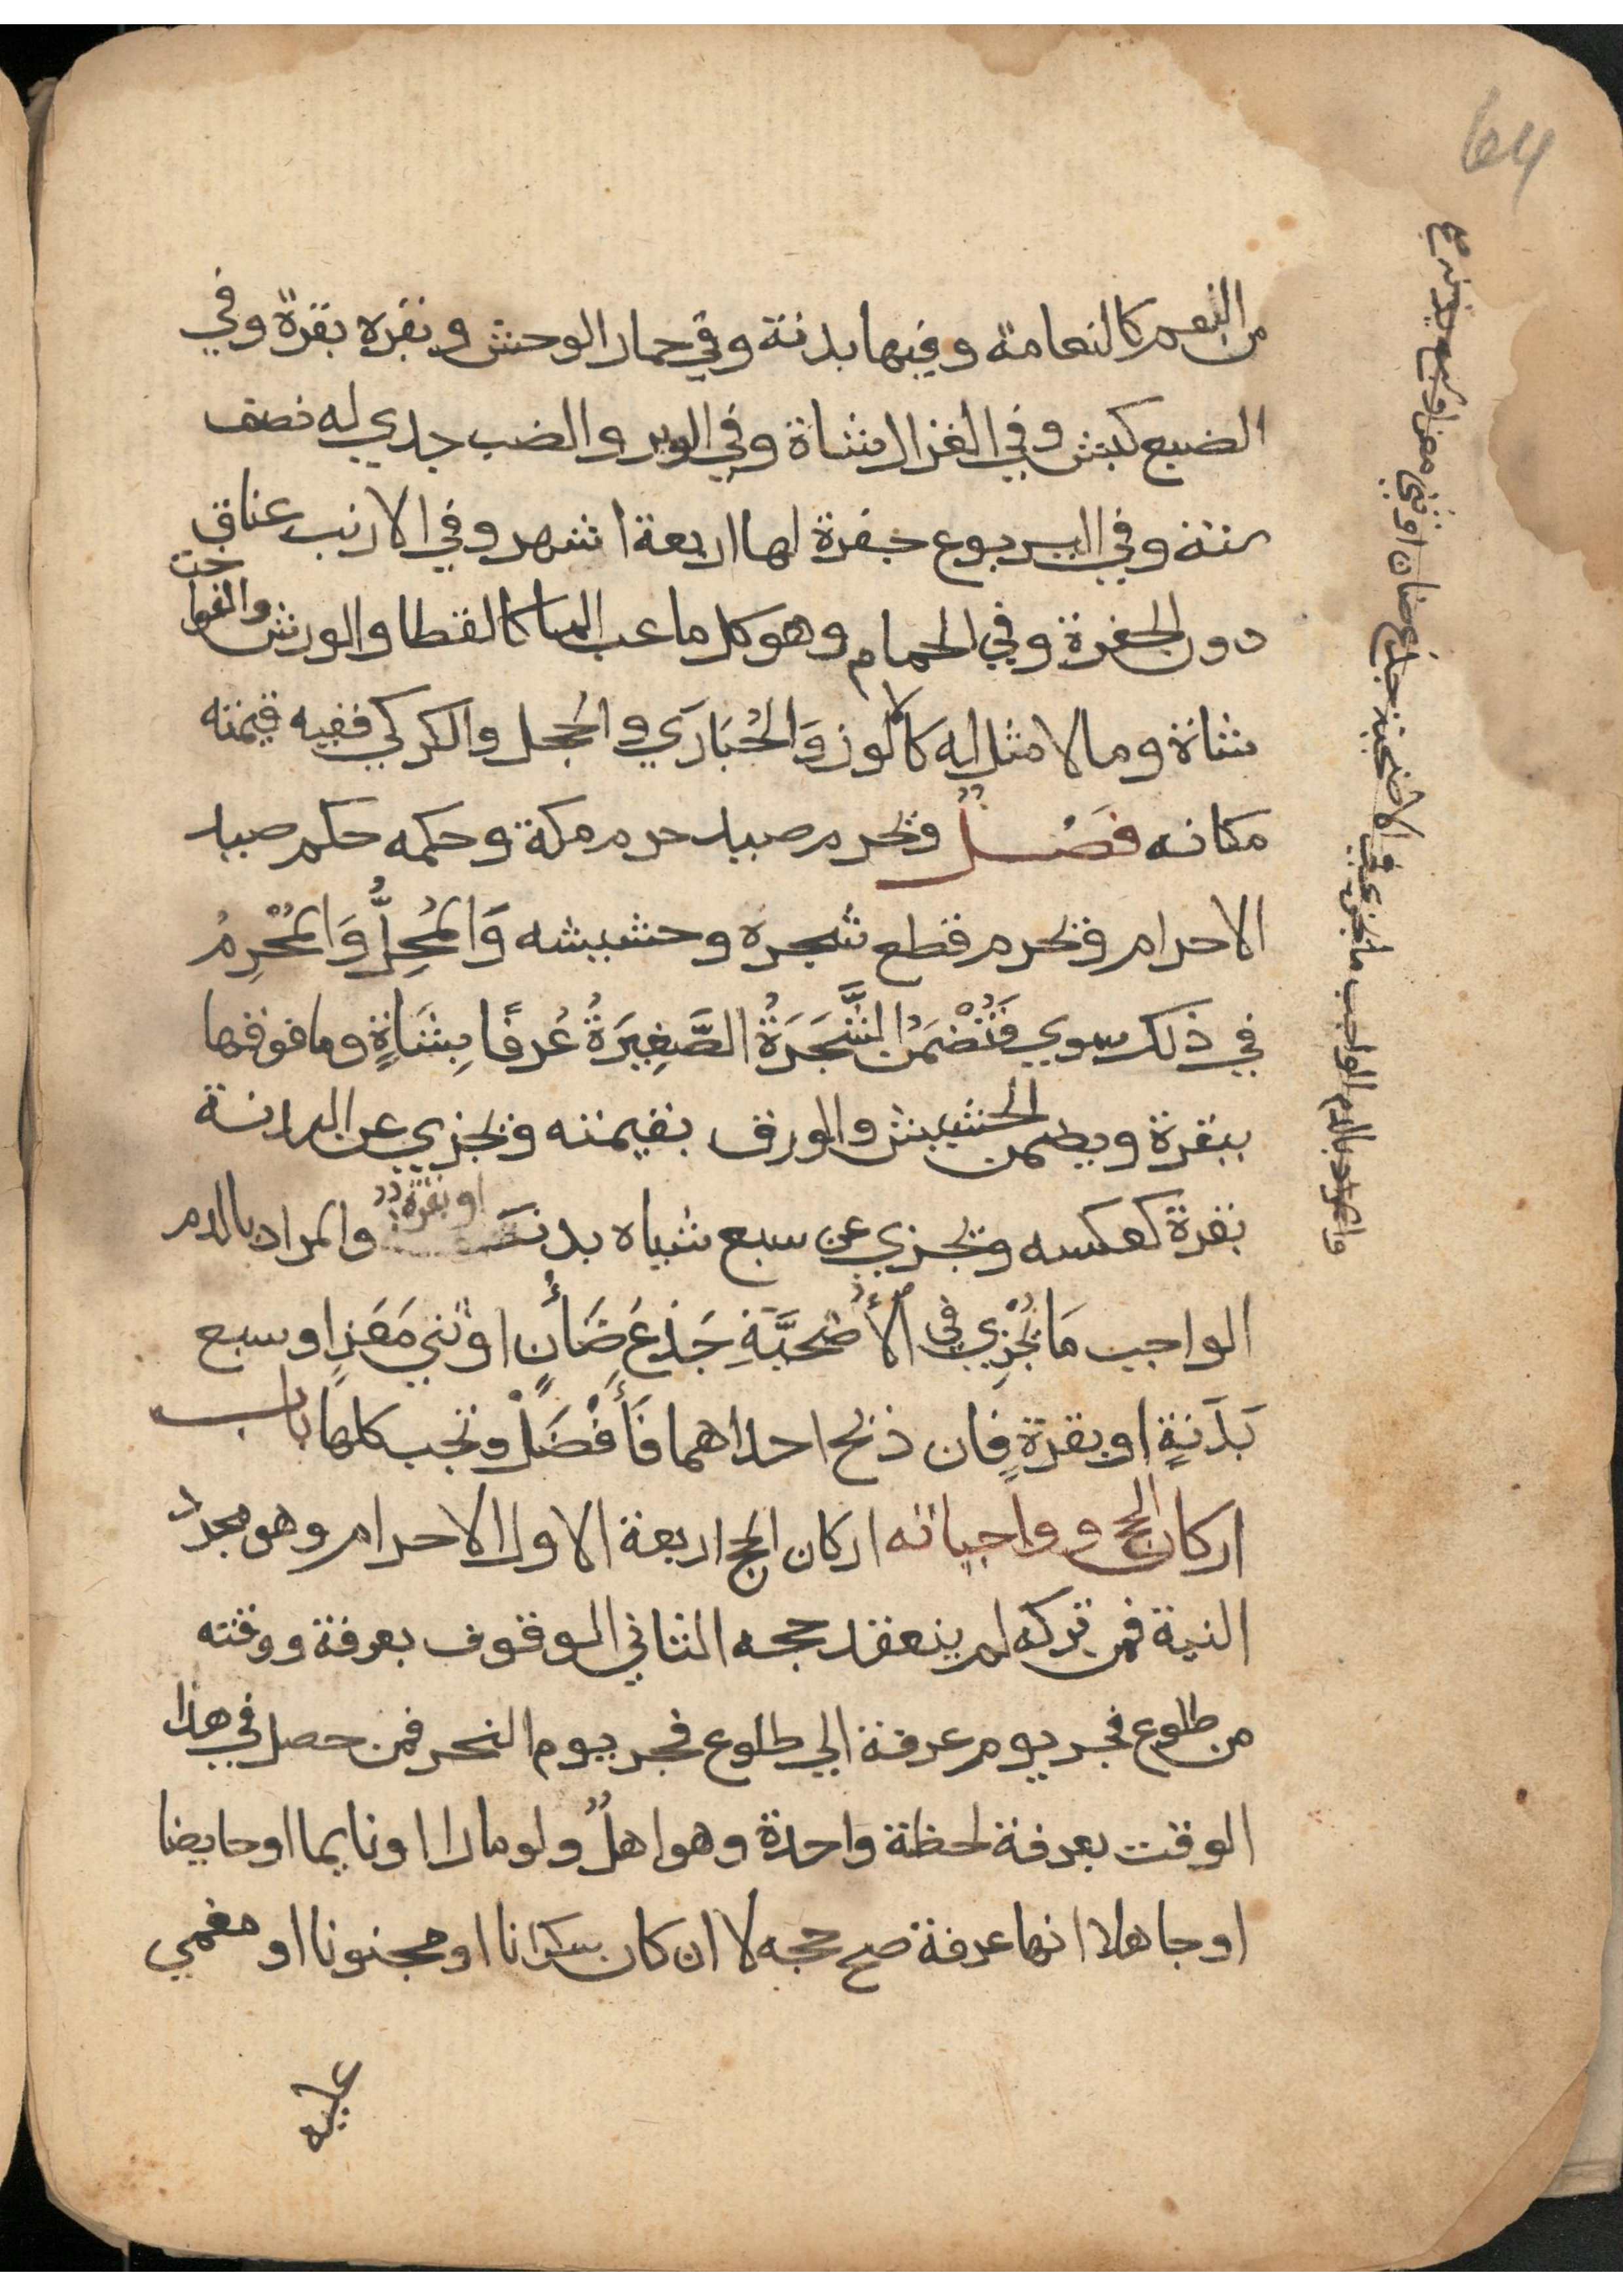 64
من النعم كالنعامة وفيها بدنة وفي حمار الوحش وبقره بقرة وفي
الضبع كبش وفي الغزال شاة وفي الوبر والضب جدي له نصف
سنة وفي اليربوع جفرة لها اربعة اشهر وفي الارنب عناق
دون الجفرة وفي الحمام وهو كل ما عب الما كالقطا والورش والفواخت
شاة وما لا مثل له كالوز وَالحُبَارَي والحجل والكركي ففيه قيمته
مكانه فَصْلٌ ويحرم صيد حرم مكة وحكمه حكم صيد
الاحرام ويحرم قطع شجره وحشيشه وَالمُحِلُّ وَالمُحْرِمُ
في ذلك سوي فَتُضْمَنُ الشَّجَرَةُ الصَّغِيرَةُ عُرفًا بِشَاةٍ وما فوقها
ببقرة ويضمن الحشيش والورق بقيمته وتجزي عن البدنة
بقرة كعكسه وتجزي عن سبع شياه بدنة او بقرة والمراد بالدم
الواجب مَا يُجْزِي في الأُضْحِيَّةِ جَذَعُ ضَأْنٍ او ثني مَعَزٍ او سبع
بَدَنَةٍ او بقرةٍ فان ذبح احداهما فَأَفْضَلْ وتجب كلها باب
اركان الحج وواجباته اركان الحج اربعة الاول الاحرام وهو مجرد
النية فمن تركه لم ينعقد حجه الثاني الوقوف بعرفة ووقته
من طلوع فجر يوم عرفة الي طلوع فجر يوم النحر فمن حصل في هذا
الوقت بعرفة لحظة واحدة وهو اهلٌ ولو مارا او نايما او حايضا
او جاهلا انها عرفة صح حجه لا ان كان سكرانا او مجنونا او مغمي
عليه
والمراد بالدم الواجب ما يجزي في الاضحية جذع ضان او ثني معز او سبع